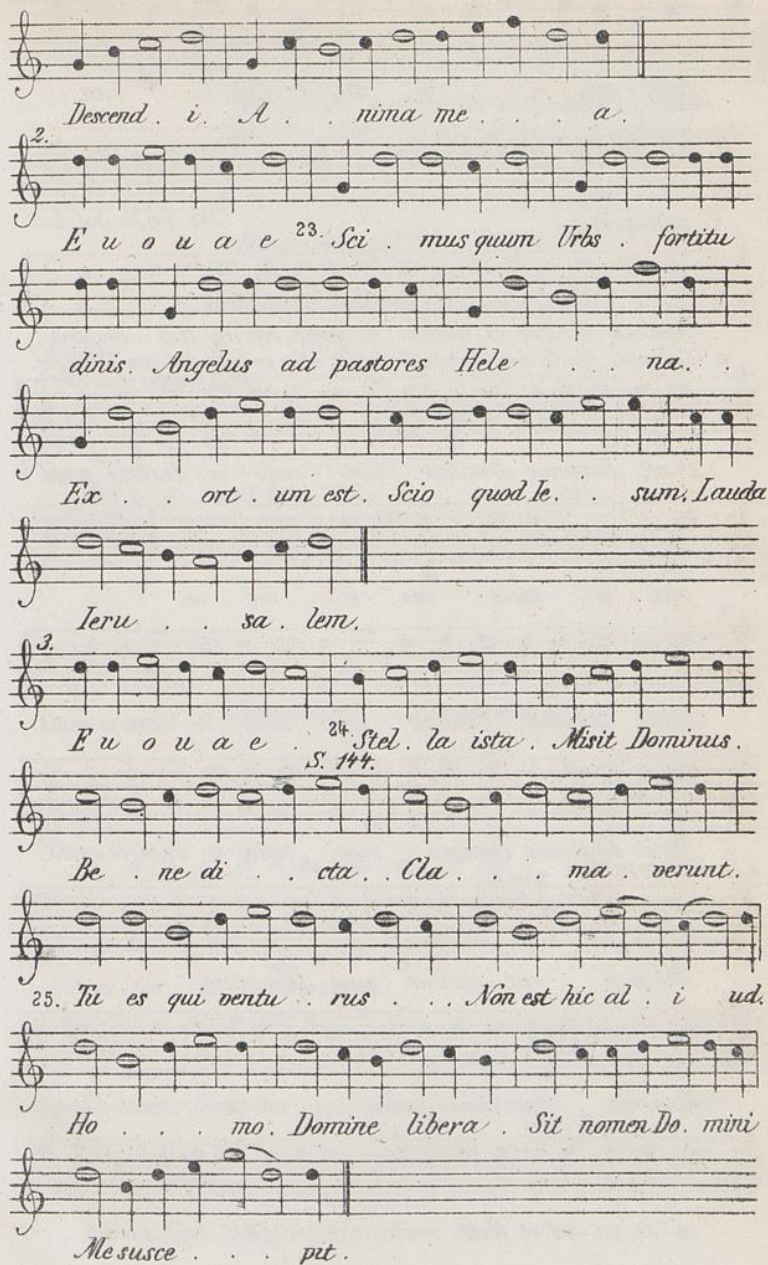 Descend . i . A . . nima me . . . a.
2.
E u o u a e 23. Sci . mus quum Urbs . fortitu
dinis. Angelus ad pastores Hele . . . na. .
Ex . . ort . um est. Scio quod Ie . . sum. Lauda
Ieru . . sa . lem.
3.
E u o u a e . 24. Stel . la ista . Misit Dominus.
S. 144.
Be . ne di . . cta . . Cla . . . ma . verunt.
25. Tu es qui ventu . rus . . . Non est hic al . i ud.
Ho . . . mo. Domine libera . Sit nomen Do . mini
Me susce . . . pit .